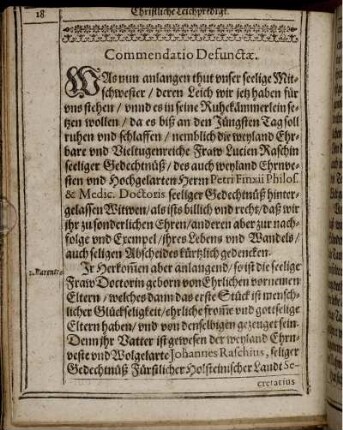 18
Christliche Leichpredigt.
Commendatio Defunctæ.
WAs nun anlangen thut vnser seelige Mit-
schwester / deren Leich wir jetz haben für
vns stehen / vnnd es in seine Ruhekämmerlein se-
tzen wollen / da es biß an den Jüngsten Tag soll
ruhen vnd schlaffen / nemblich die weyland Ehr-
bare vnd Vieltugenreiche Fraw Lucien Raschin
seeliger Gedechtnüß / des auch weyland Ehrnve-
sten vnd Hochgelarten Herrn Petri Finxii Philos.
& Medic. Doctoris seeliger Gedechtnüß hinter-
gelassen Witwen / als ists billich vnd recht / daß wir
jhr zu sonderlichen Ehren / änderen aber zur nach-
folge vnd Exempel / jhres Lebens vnd Wandels /
auch seligen Abscheides kürtzlich gedencken.
Jr Herkom̃en aber anlangend / so ist die seelige
Fraw Doctorin geborn von Ehrlichen vornemen
Eltern / welches dann das erste Stück ist mensch-
licher Glückseligkeit / ehrliche from̃e vnd gottselige
Eltern haben / vnd von denselbigen gezeuget sein.
Denn jhr Vatter ist gewesen der weyland Ehrn-
veste vnd Wolgelarte Johannes Raschius, seliger
Gedechtnüß Fürstlicher Holsteinischer Landt Se-
cretarius